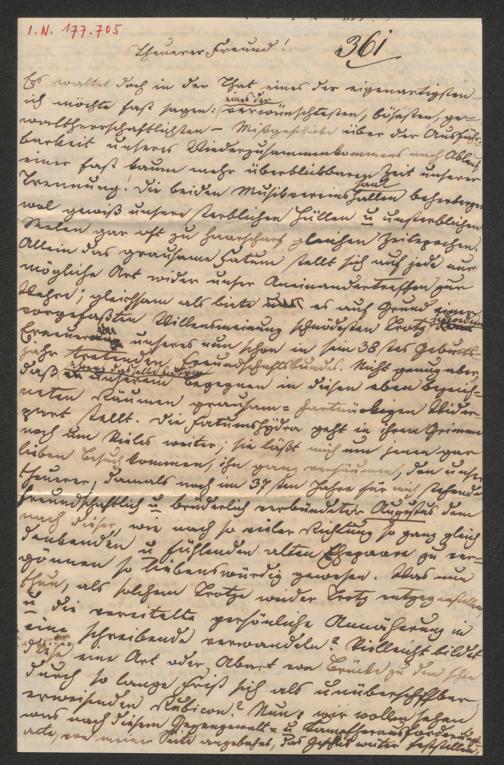 I.N. 177.705
361
Theuerer Freund!
Es waltet doch in der That eines der eigenartigsten
ich möchte fast sagen: eines der verwünschtesten, bösesten, ge-
waltherrschaftlichsten – Mißgeschicke über der Ausführ-
barkeit unseres Wiederzusammenkommens nach Ablauf
einer fast kaum mehr überblickbaren Zeit unserer
Trennung! Die beiden Musikvereinssaal beherbergen
wol gewiß unsere sterblichen Hüllen u unsterblichen
Seelen gar oft zu haarscharf gleichen Zeitepochen.
Allein das grausame Fatum stellt sich auf jede nur
mögliche Art wider unser Aneinandertreffen zur
Wehre; gleichsam als biete es auf Grund einer
vorgefaßten Willensmeinung schnödesten Trotz
Erneuerung unseres nun schon in sein 38stes Geburts-
jahr tretenden Freundschaftsbundes. Nicht genug aber
daß unserem Begegnen in diesen eben bezeich-
neten Räumen grausam-hartnäckigen Wider-
part stellt. Die Fatumshydra geht in ihrem Grimme
noch um Vieles weiter; sie läßt mich um jenen gar
lieben Besuch kommen, ihn ganz versäumen, den unser
theuerer, damals noch im 37sten Jahre für mich
freundschaftlich u brüderlich verbündeter Augustus dem
nach dieser, wie nach so vieler Richtung so ganz gleich
denkenden u fühlenden alten Ehepaare zu ver-
gönnen so liebenswürdig gewesen. Was nun
thun, als solchem Trotze wieder Trotz entgegenstellen
u die vereitelte persönliche Annäherung in
eine schreibende verwandeln? Vielleicht bildet
diese eine Art oder Abart von Brücke zu dem
durch so lange Frist sich als unüberschiffbar
erweisenden Rubicon? Nun, wir wollen sehen
was nach diesem Gegengewalt- u Kampfherausforderungs-
acte, von meiner Seite angebahnt, das Geschick weiter feststellen